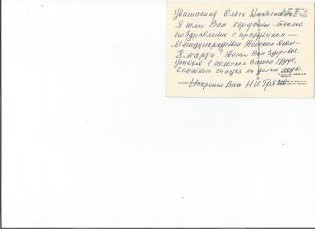 Уважаемая Ольга
Я шлю Вам сердечно тёплые
поздравления с праздником —
Международным Женским днём —
8 марта! Желаю Вам здоровья,
успехов в нелёгком Вашем труде,
счастья на долгие годы.
— Искренне Ваш